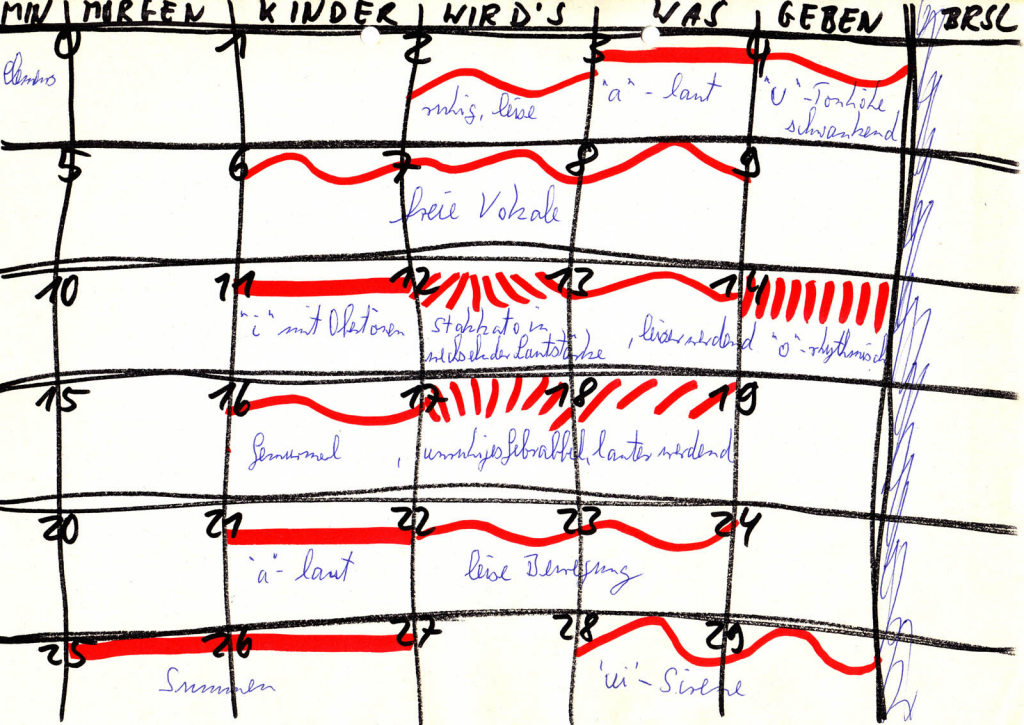 MIN MORGEN KINDER WIRD'S WAS GEBEN BRSL
0 1 2 3 4
ruhig, leise "a"-laut "U"-Tonhöhe,
schwankend
5 6 7 8 9
freie Vokale
10 11 12 13 14
"i" mit Obertönen stakkato in , leiser werdend "o"-rhythmisch
wechselnder Lautstärke
15 16 17 18 19
Gemurmel , unruhiges Gebrabbel, lauter werdend
20 21 22 23 24
"a"-laut leise Bewegung
25 26 27 28 29
Summen "ui"-Sirene